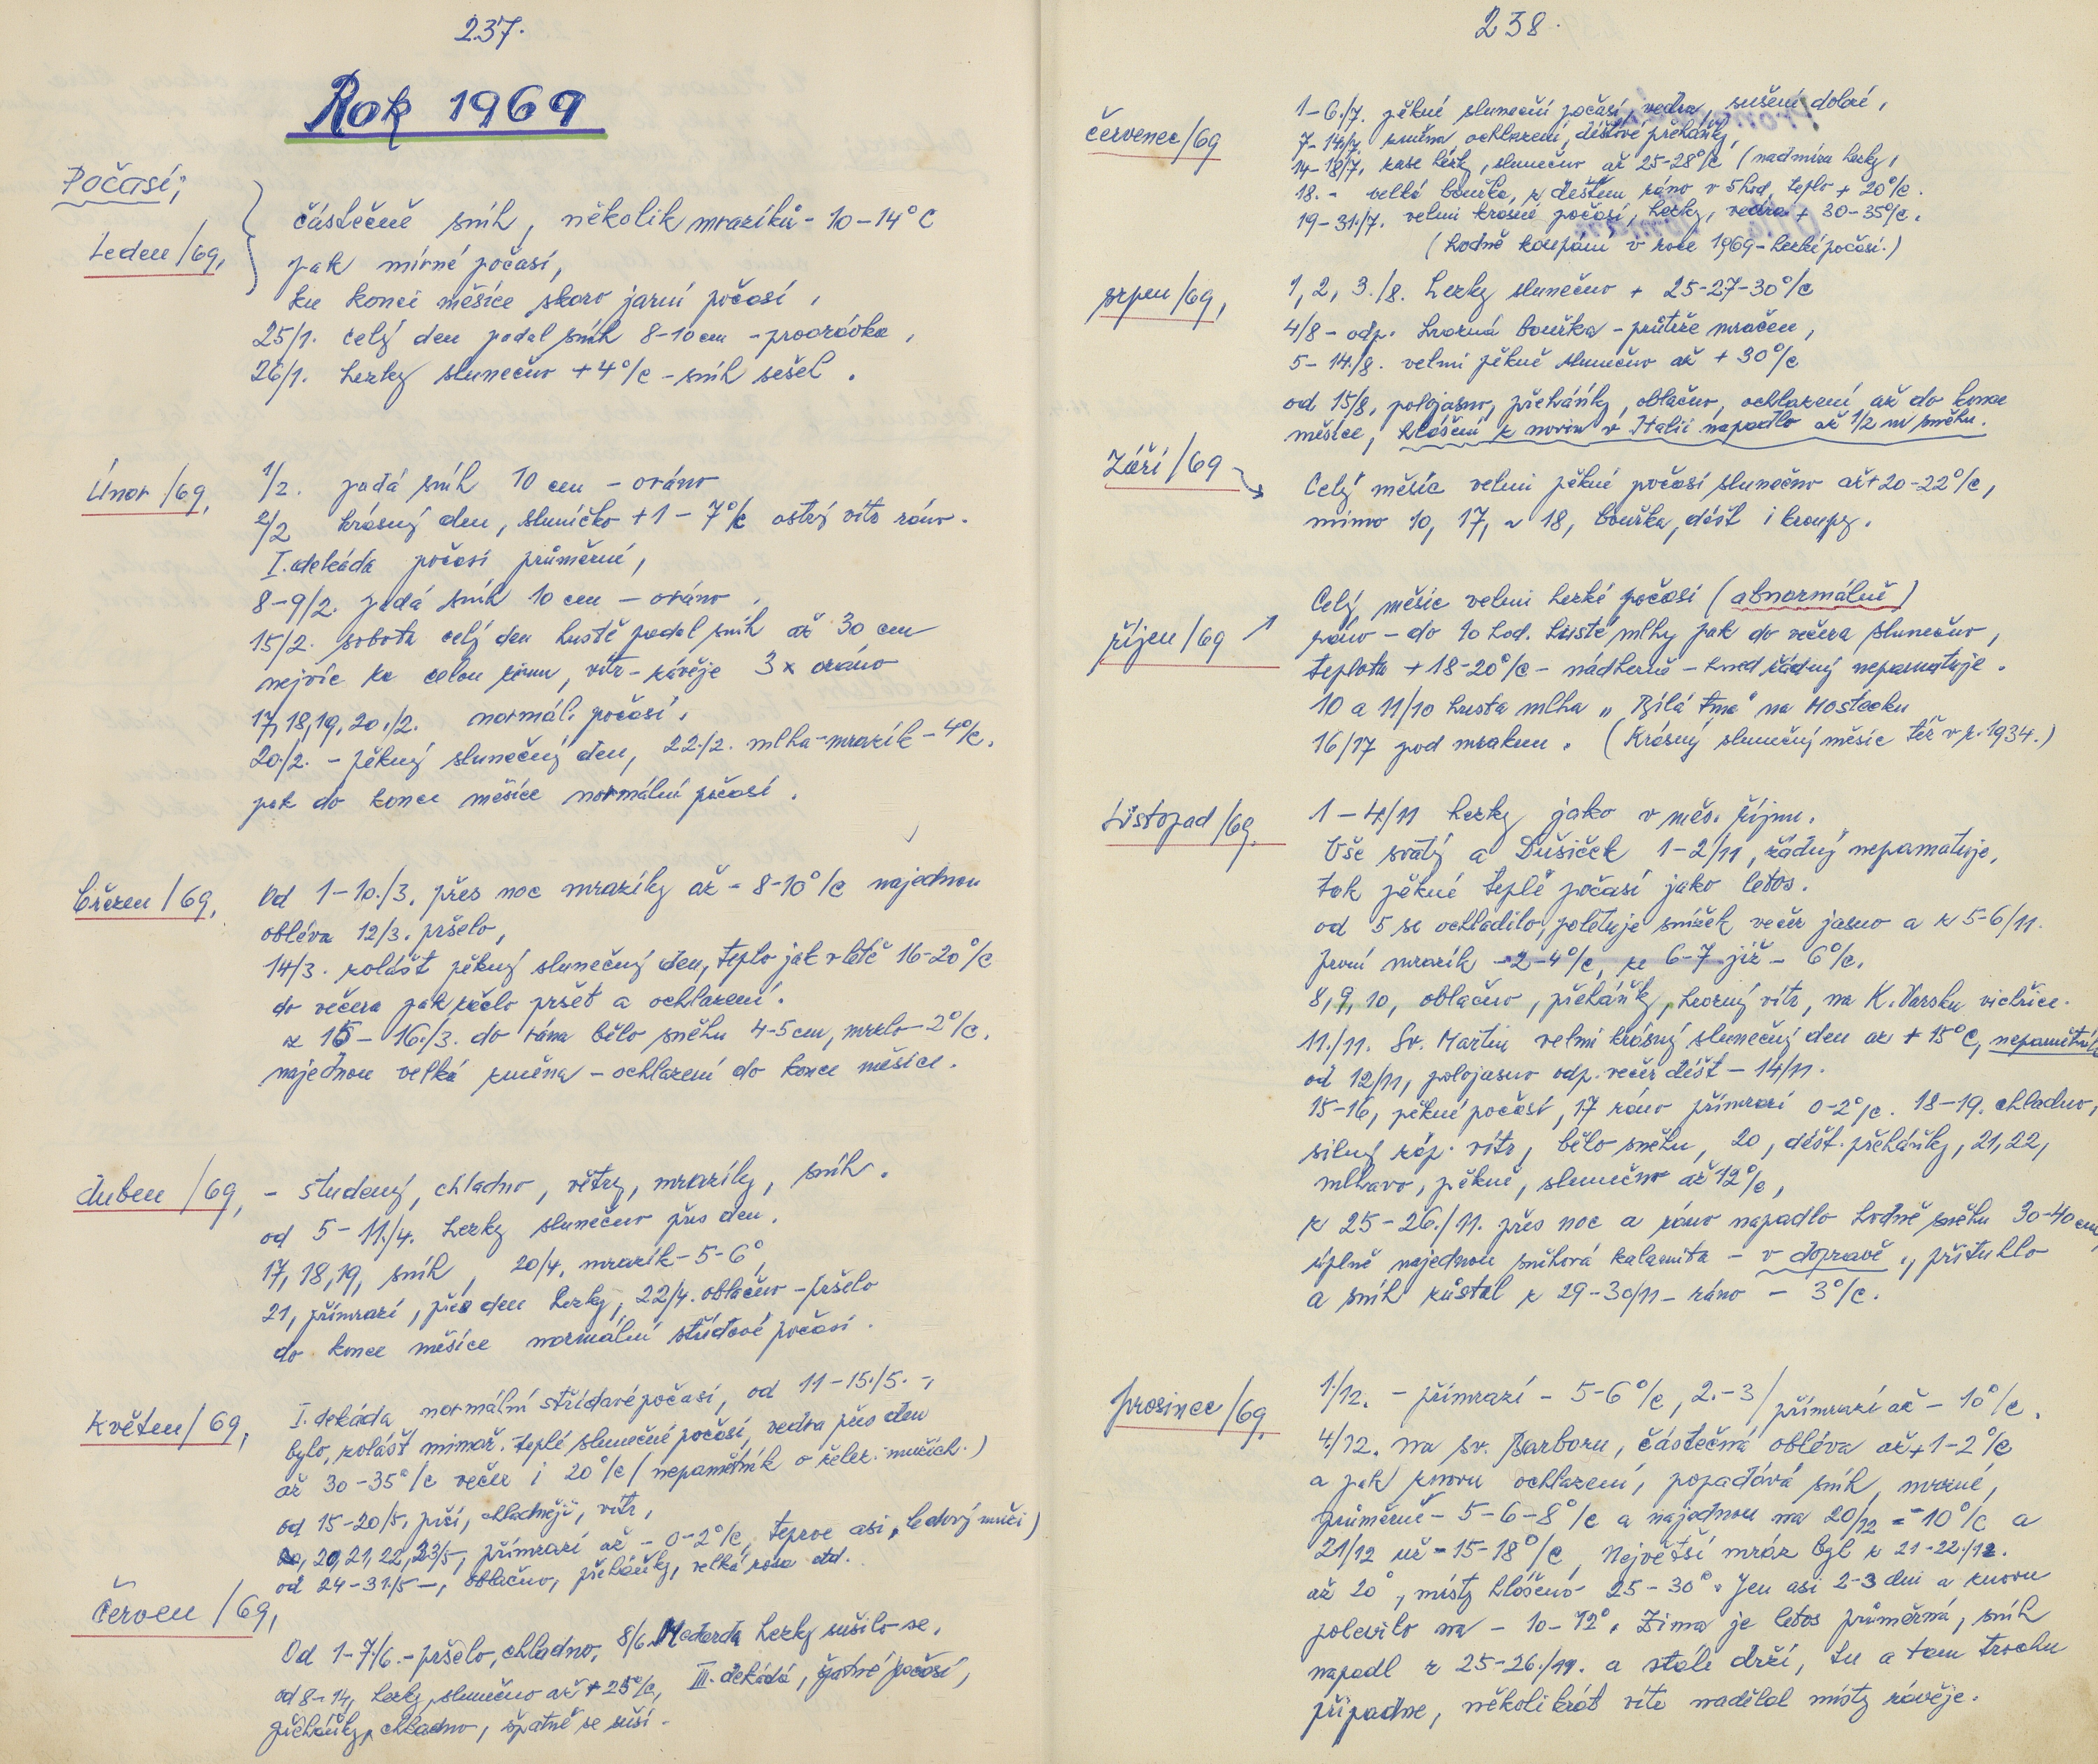 237.
Rok 1969
Počasí;
Leden/69,
částečně sníh, několik mrazíků - 10-14° C
pak mírné počasí,
ku konci měsíce skoro jarní počasí,
25/1. celý den padal sníh 8-10 cm - proorávka,
26/1. hezky slunečno +4°/c - sníh sešel.
Únor /69,
1/2. padá sníh 10 cm - oráno
2/2 krásný den, sluníčko +1 - 7°/c ostrý vítr ráno.
I. dekáda počasí průměrné,
8-9/2. padá sníh 10 cm - oráno,
15/2. sobota celý den hustě padal sníh až 30 cm
nejvíc za celou zimu, vítr - závěje 3x oráno
17, 18, 19, 20./2. normál. počasí,
20/2. - pěkný slunečný den, 22./2. mlha - mrazík - 4°/c,
pak do konce měsíce normální počasí.
březen/69,
Od 1-10./3. přes noc mrazíky až - 8-10°/c najednou
obléva 12/3. pršelo,
14/3. zvlášt pěkný slunečný den, teplo jak v létě 16-20°/c
do večera pak začlo pršet a ochlazení.
z 15 - 16./3. do rána bělo sněhu 4-5 cm, mrzlo - 2°/c,
najednou velká změna - ochlazení do konce měsíce.
duben /69,
- studený, chladno, větry, mrazíky, sníh.
od 5 - 11./4. hezky slunečno přes den,
17, 18, 19, sníh, 20/4, mrazík - 5-6°,
21, přímrazí, přes den hezky, 22/4. oblačno - pršelo
do konce měsíce normální střídavé počasí.
květen/69,
I. dekáda normální střídavé počasí, od 11-15./5. -,
bylo, zvlášt mimoř. teplé slunečné počasí, vedra přes den
až 30-35°/c večer i 20°/c (nepamětník o želez. mužích.)
od 15-20/5, prší, chladněji, vítr,
20, 21, 22, 23/5, přímrazí až - 0-2°/c, teprve asi, ledový muži)
od 24-31/5 -, oblačno, přeháňky, velká rosa atd.
červen /69,
Od 1-7/6. - pršelo, chladno, 8/6. Medarda hezky sušilo se,
od 8-14, hezky slunečno až + 25°/c, III. dekáda, špatné počasí,
přeháňky, chladno, špatně se suší.
238.
červenec/69
1-6./7. pěkné sluneční počasí, vedra, sušení dobré,
7-14/7 změna ochlazení, déštové přeháňky,
14-18/7, zase hezky, slunečno až 25-28°/c (nadmíra hezky,
18. - velká bouřka, z deštěm ráno v 5 hod, teplo + 20°/c.
19-31./7. velmi krásné počasí, hezky, vedra + 30-35°/c.
(hodně koupání v roce 1969 - hezké počasí.)
srpen/69,
1, 2, 3./8. hezky slunečno + 25-27-30°/c
4/8 - odp. hrozná bouřka - průtrže mračen,
5-14./8. velmi pěkně slunečno až + 30°/c
od 15/8, polojasno, přeháňky, oblačno, ochlazení až do konce
měsíce, hlášení z novin v Italii napadlo až 1/2 m sněhu.
Září/69
Celý měsíc velmi pěkné počasí slunečno až + 20-22°/c,
mimo 10, 17, a 18, bouřka, déšt i kroupy.
říjen/69
Celý měsíc velmi hezké počasí (abnormálně)
ráno - do 10 hod. husté mlhy pak do večera slunečno,
teplota + 18-20°/c - nádherně - hned žádný nepamatuje.
10 a 11/10 hustá mlha „Bílá tma" na Mostecku
16/17 pod mrakem. (Krásný slunečný měsíc též v r. 1934.)
Listopad/69,
1-4/11 hezky jako v měs. říjnu.
Vše svatý a Dušiček 1-2/11, žádný nepamatuje,
tak pěkné teplé počasí jako letos.
od 5 se ochladilo, poletuje snížek večer jasno a z 5-6/11.
první mrazík -2-4°/c, ze 6-7 již - 6°/c,
8, 9, 10, oblačno, přeháňk, hrozný vítr, na K. Varsku vichřice.
11./11. Sv. Martin velmi krásný slunečný den až + 15° C, nepamětník
od 12/11, polojasno odp. večer déšt - 14/11.
15-16, pěkné počasí, 17 ráno přímrazí 0-2°/c. 18-19. chladno,
silný záp. vítr, bělo sněhu, 20, déšt. přeháňky, 21, 22,
mlhavo, pěkně, slunečno až 12°/c,
z 25-26./11. přes noc a ráno napadlo hodně sněhu 30-40 cm,
úplně najednou sněhová kalamita - v dopravě, přituhlo
a sníh zůstal z 29-30/11 - ráno - 3°/c.
prosinec/69,
1./12. - přímrazí - 5-6°/c, 2.-3/ přímrazí až - 10°/c.
4./12. na sv. Barboru, částečná obléva až + 1-2°/c
a pak znovu ochlazení, popadává sníh, mrazné,
průměrně - 5-6-8°/c a najednou na 20/12 = -10°/c a
21/12 už - 15-18°/c, Největší mráz byl z 21-22./12.
až 20°, místy hlášeno 25-30°. Jen asi 2-3 dni a znovu
polevilo na - 10-12°. Zima je letos průměrná, sníh
napadl z 25-26./11. a stále drží, tu a tam trochu
připadne, několikrát vítr nadělal místy závěje.